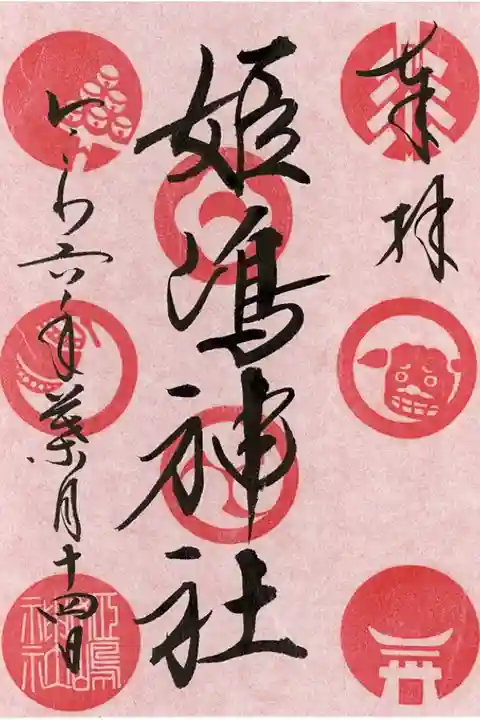 奉拝
姫嶋神社
れいわ六年葉月十四日
姫嶋
神社